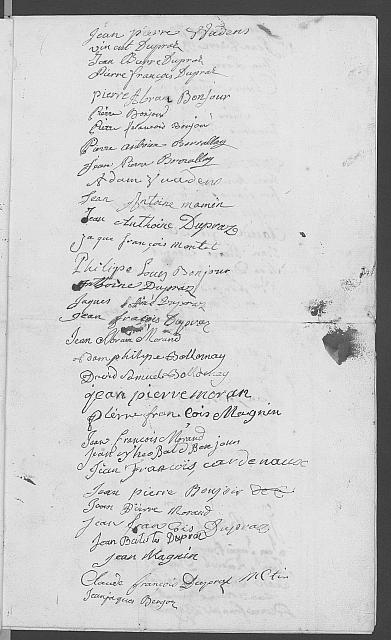 jean pierre Vadens
vincent Dupraz
Jean Pierre Dupraz
Pierre françois Dupraz
pierre Abram Bonjour
Piere Bonjour
Piere francois Bonjour
Pierre
Jean Pierre
Adam Vuadens
Jean Antoine mamin
Jean Anthoine Dupraz
jaque françois montet
Philipe Louis Bonjour
Antoine Dupraz
Jaques Dupraz
Jean fraçois Dupraz
Jean Abram Morand
adam philipe Dollornay
David Samuel Dollornay
jean pierre moran
pierre fran cois Magnin
Jean francois Morand
Jean Bonjour
Jean francois cardenaux
Jean pierre Bonjour
Jean Pierre Morand
jean fran cois Dupraz
Jean Batiste Dupraz
jean Magnin
Claude francois Dupraz
Jean jaques Bonjor